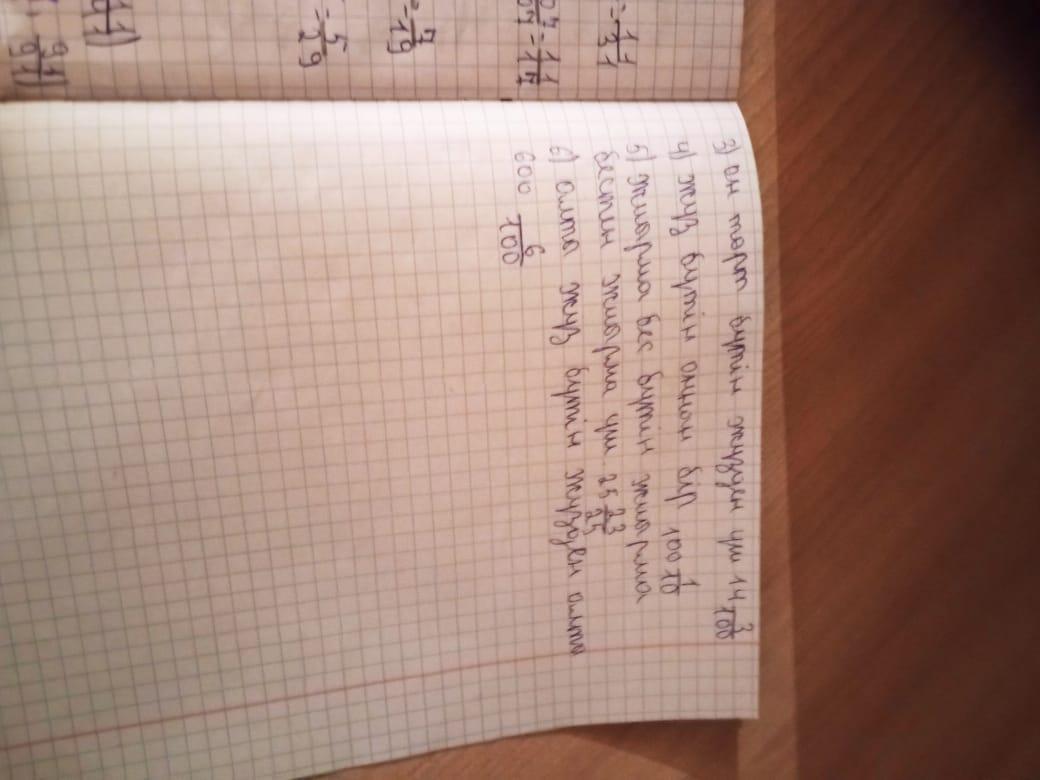 3) он төрт бүтін жүзден үш 14 3/100
4) жүз бүтін оннан бір 100 1/10
5) жиырма бес бүтін жиырма
бестен жиырма үш 25 23/25
6) алты жүз бүтін жүзден алты
600 6/100
= 1 1/31
= 1 1/17
= 7/19
= 5/29